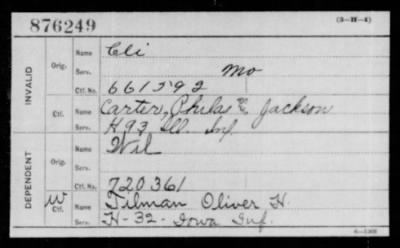 876249 (3-II-4)
INVALID
Orig. Name Cli
Serv. Mo
Ctf. No. 661292
Ctf. Name Carter, Philas E. Jackson
Serv. H 93 Ill. Inf
DEPENDENT
Orig. Name Wil
Serv.
Ctf. No. 720361
W Ctf. Name Tilman Oliver H.
Serv. H-32-Iowa Inf.